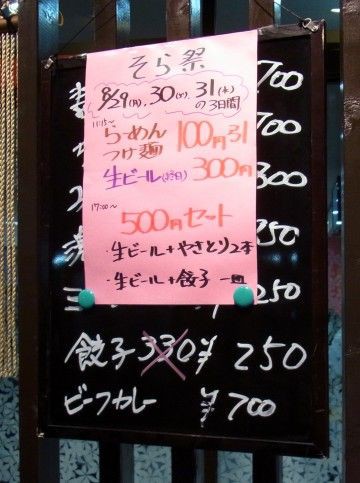 そら祭
8/29(月), 30(火), 31(水)
の3日間
11:15〜
らーめん
つけ麺 100円引
生ビール(終日) 300円
17:00〜
500円セット
・生ビール+やきとり2本
・生ビール+餃子 一皿
700
700
300
250
250
餃子 330 ¥ 250
ビーフカレー ¥700